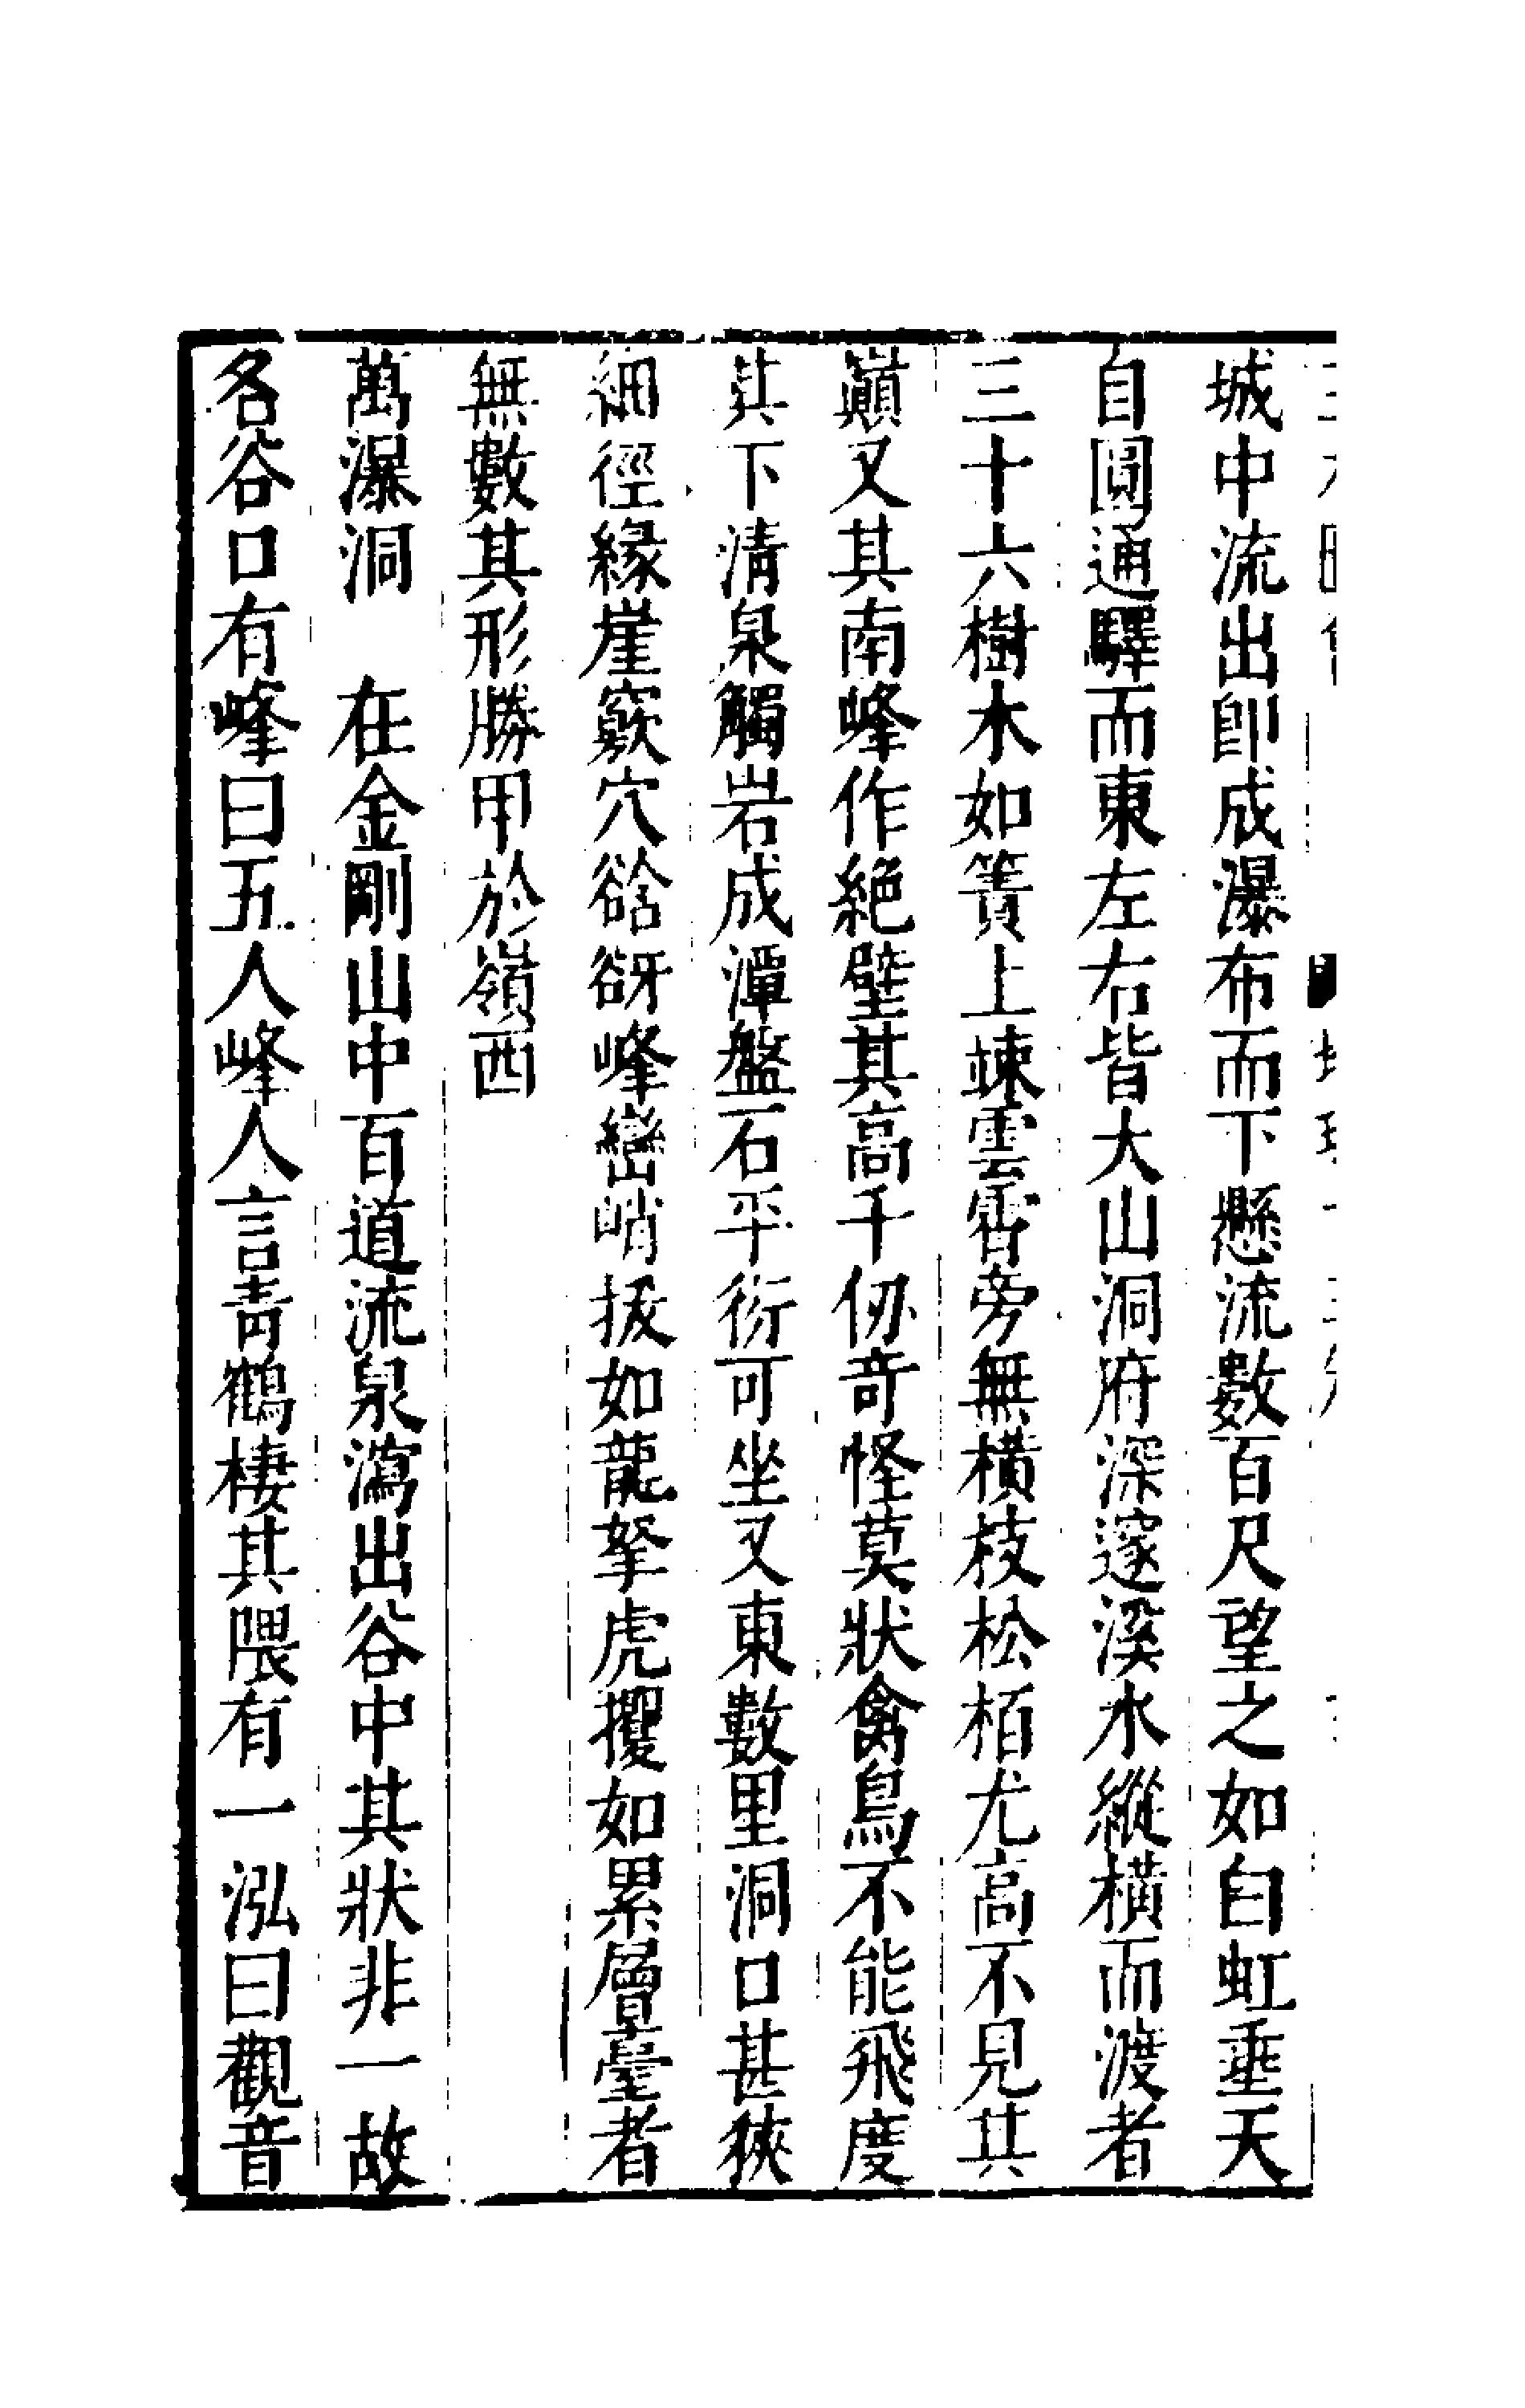 城中流出卽成瀑布而下懸流數百尺望之如白虹垂天
自圓通驛而東左右皆大山洞府深邃溪水縱橫而渡者
三十六樹木如簀上竦雲霄旁無橫枝松栢尤高不見其
巔又其南峰作絶壁其高千仞奇怪莫狀禽鳥不能飛度
其下淸泉觸岩成潭盤石平衍可坐又東數里洞口甚狹
細徑緣崖窾穴谽谺峰巒峭拔如龍拏虎攫如累層臺者
無數其形勝甲於嶺西
萬瀑洞　在金剛山中百道流泉瀉出谷中其狀非一故
各谷口有峰曰五人峰人言靑鶴棲其隈有一泓曰觀音